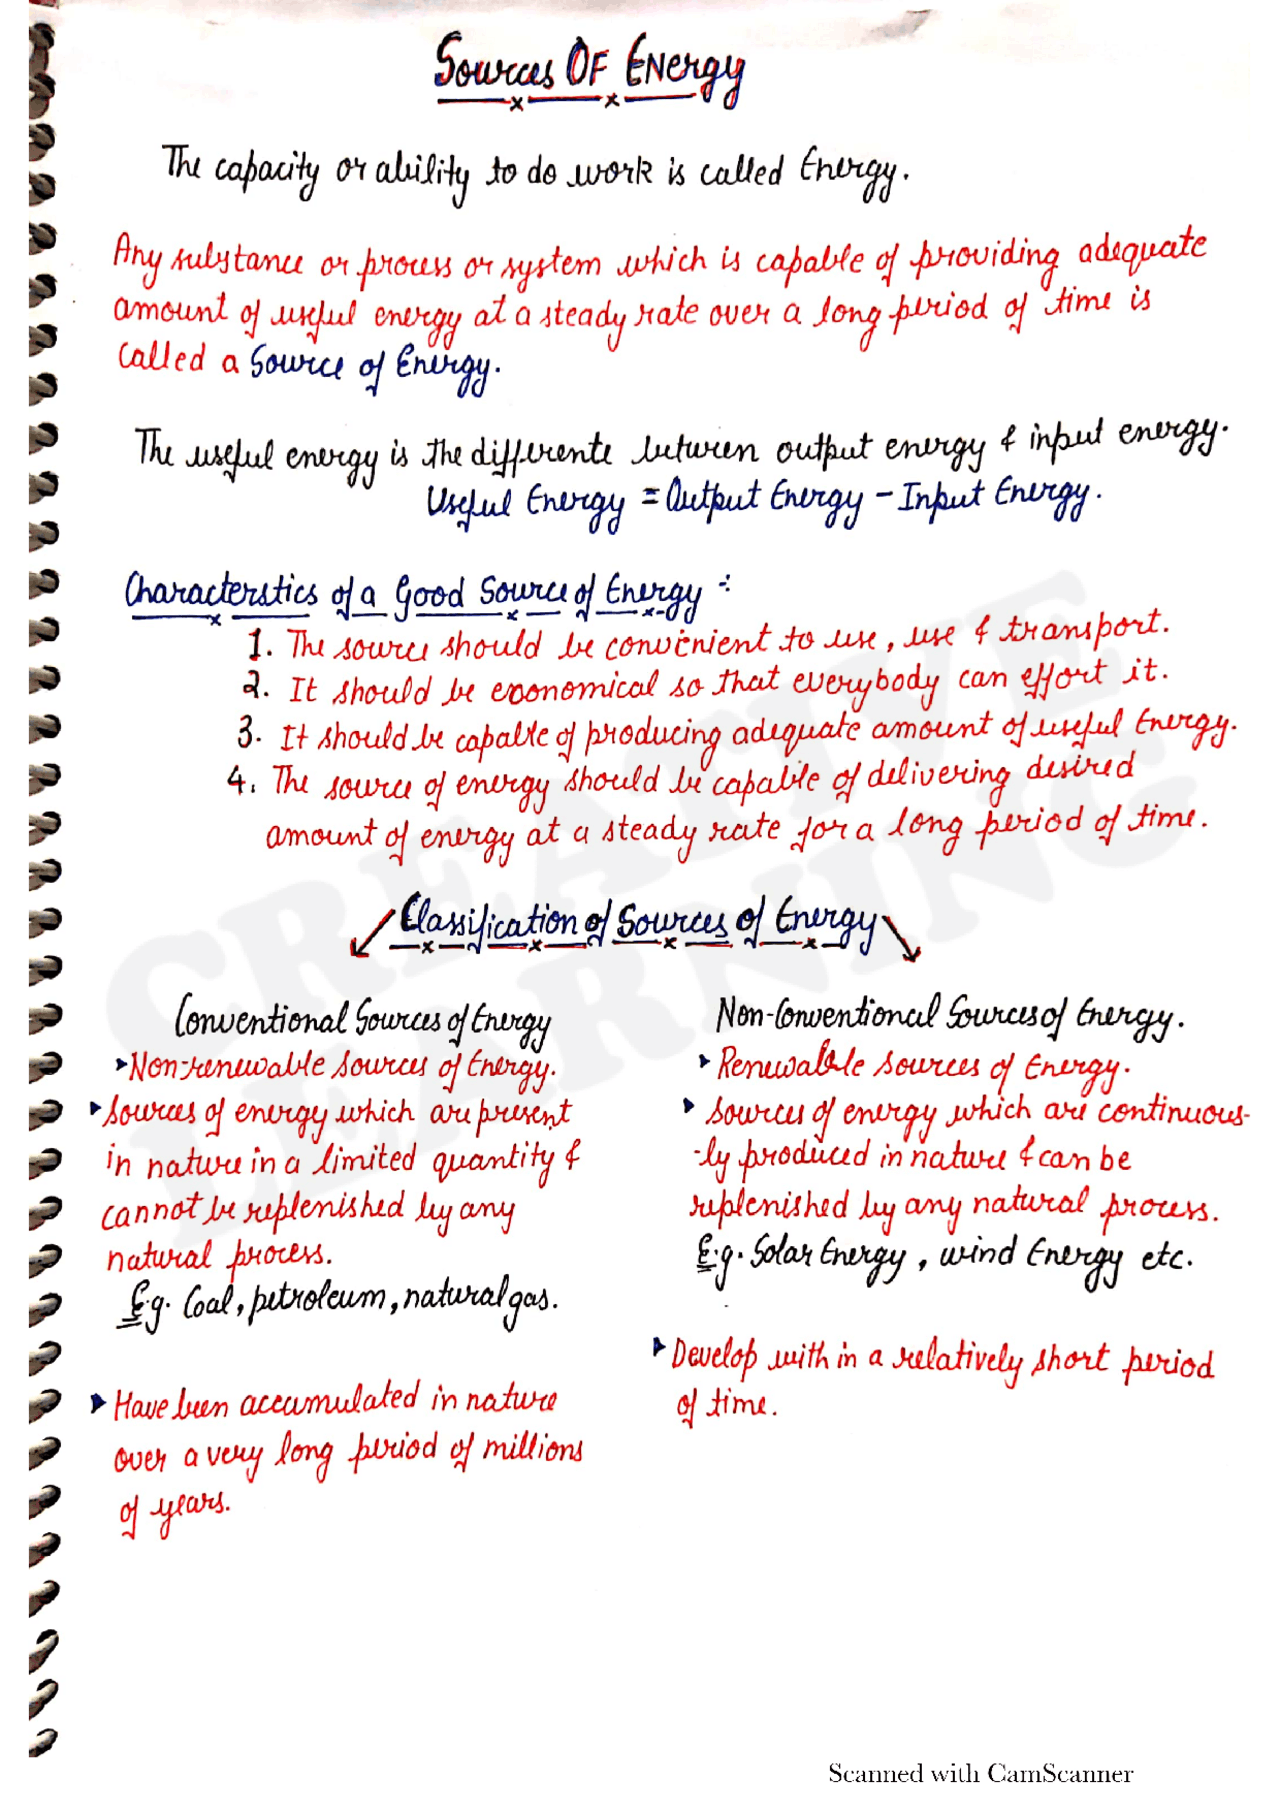 Sources OF ENergy
The capacity or ability to do work is called Energy.
Any substance or process or system which is capable of providing adequate
amount of useful energy at a steady rate over a long period of time is
called a Source of Energy.
The useful energy is the differente between output energy & input energy.
Useful Energy = Output Energy - Input Energy.
Characterstics of a Good Source of Energy :-
1. The source should be convenient to use, use & transport.
2. It should be economical so that everybody can effort it.
3. It should be capable of producing adequate amount of useful Energy.
4. The source of energy should be capable of delivering desired
amount of energy at a steady rate for a long period of time.
CREATIVE
LEARNING
Classification of Sources of Energy
Conventional Sources of Energy
‣Non-renewable sources of Energy.
‣Sources of energy which are present
in nature in a limited quantity &
cannot be replenished by any
natural process.
E.g. Coal, petroleum, natural gas.
‣Have been accumulated in nature
over a very long period of millions
of years.
Non-Conventional Sources of Energy.
‣Renewable sources of Energy.
‣Sources of energy which are continuous-
-ly produced in nature & can be
replenished by any natural process.
E.g. Solar Energy, wind Energy etc.
‣Develop with in a relatively short period
of time.
Scanned with CamScanner